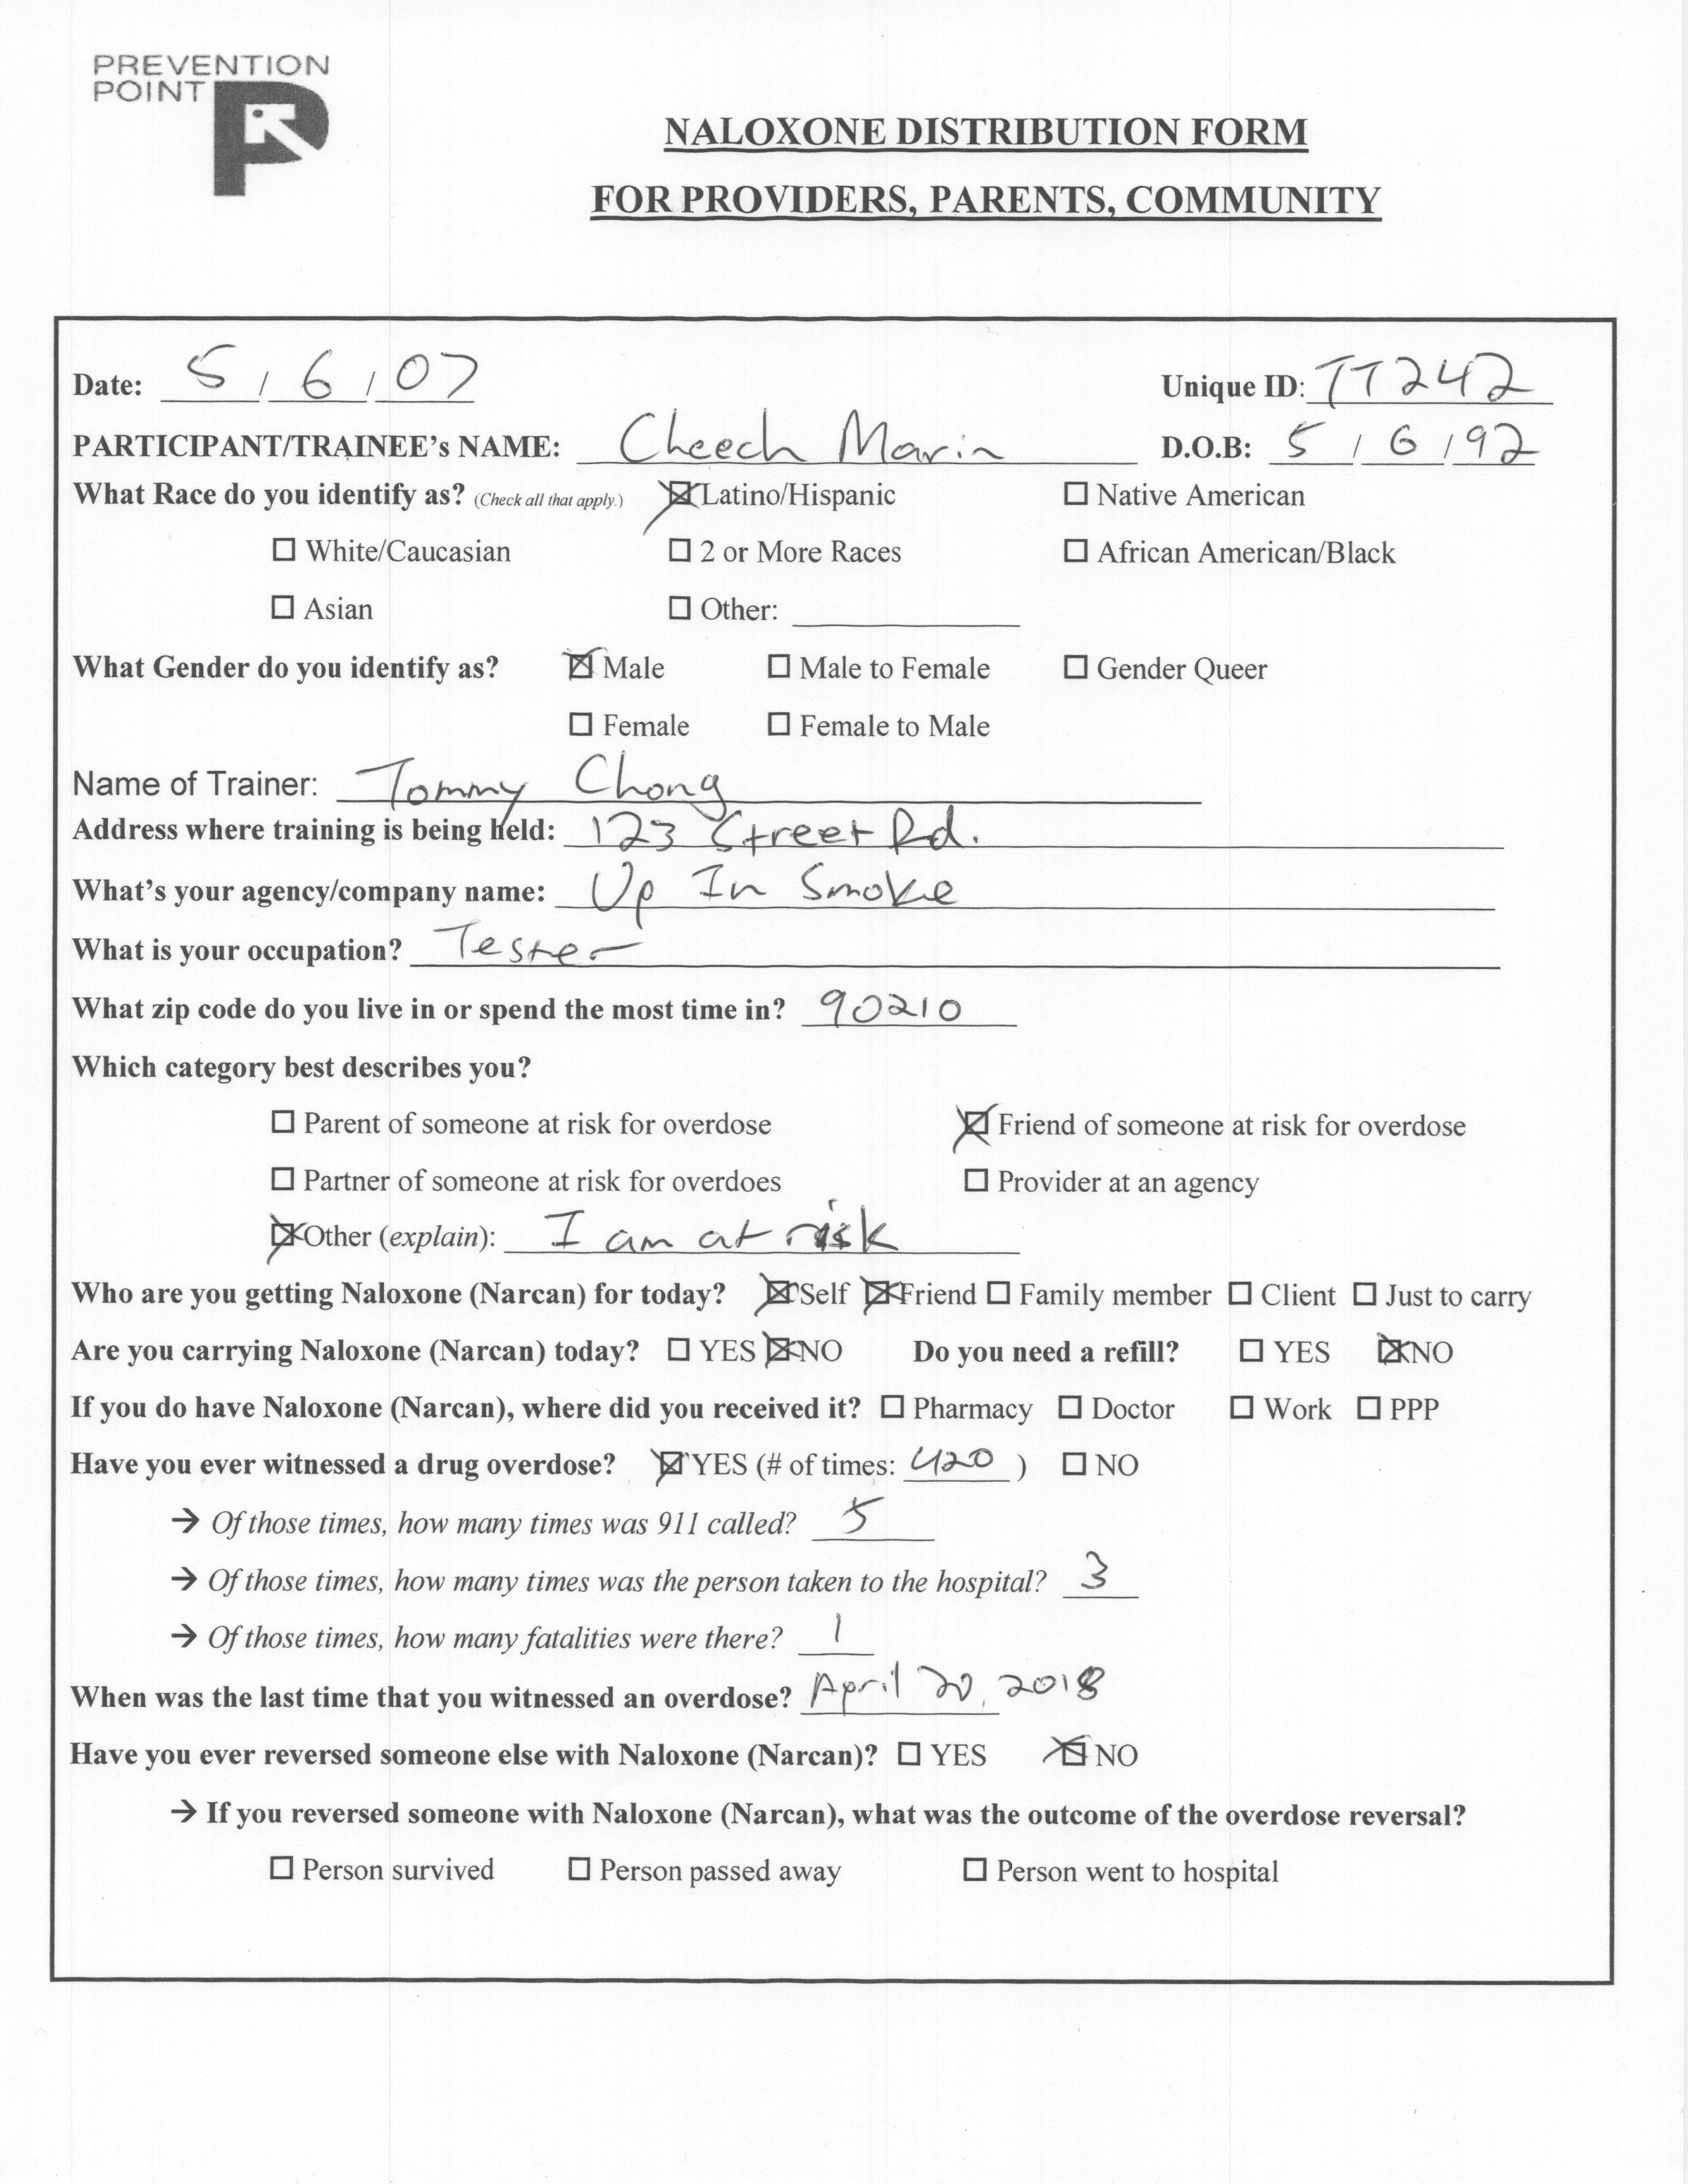 PREVENTION
POINT
NALOXONE DISTRIBUTION FORM
FOR PROVIDERS, PARENTS, COMMUNITY
Date: 5 / 6 / 07 Unique ID: TT242
PARTICIPANT/TRAINEE's NAME: Cheech Marin D.O.B: 5 / 6 / 92
What Race do you identify as? (Check all that apply.) ☒ Latino/Hispanic ☐ Native American
☐ White/Caucasian ☐ 2 or More Races ☐ African American/Black
☐ Asian ☐ Other:
What Gender do you identify as? ☒ Male ☐ Male to Female ☐ Gender Queer
☐ Female ☐ Female to Male
Name of Trainer: Tommy Chong
Address where training is being held: 123 Street Rd.
What's your agency/company name: Up In Smoke
What is your occupation? Tester
What zip code do you live in or spend the most time in? 90210
Which category best describes you?
☐ Parent of someone at risk for overdose ☒ Friend of someone at risk for overdose
☐ Partner of someone at risk for overdoes ☐ Provider at an agency
☒ Other (explain): I am at risk
Who are you getting Naloxone (Narcan) for today? ☒ Self ☒ Friend ☐ Family member ☐ Client ☐ Just to carry
Are you carrying Naloxone (Narcan) today? ☐ YES ☒ NO Do you need a refill? ☐ YES ☒ NO
If you do have Naloxone (Narcan), where did you received it? ☐ Pharmacy ☐ Doctor ☐ Work ☐ PPP
Have you ever witnessed a drug overdose? ☒ YES (# of times: 420 ) ☐ NO
→ Of those times, how many times was 911 called? 5
→ Of those times, how many times was the person taken to the hospital? 3
→ Of those times, how many fatalities were there? 1
When was the last time that you witnessed an overdose? April 20, 2018
Have you ever reversed someone else with Naloxone (Narcan)? ☐ YES ☒ NO
→ If you reversed someone with Naloxone (Narcan), what was the outcome of the overdose reversal?
☐ Person survived ☐ Person passed away ☐ Person went to hospital